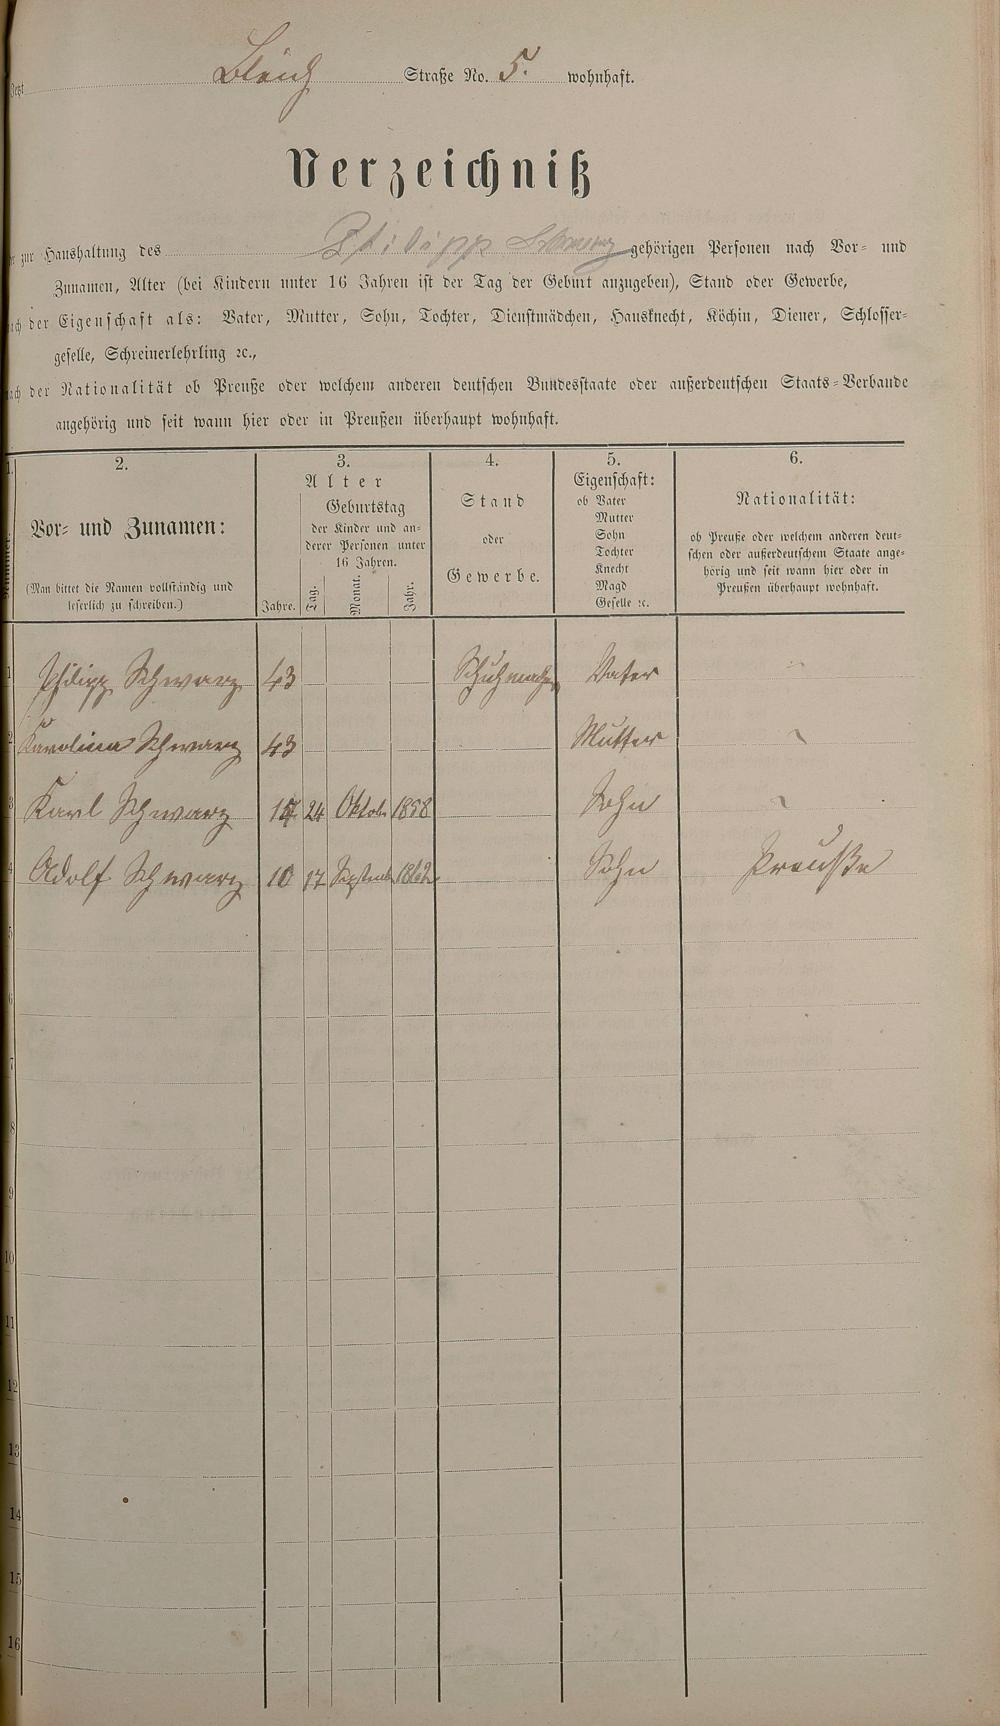 Jetzt Bleich Straße No. 5. wohnhaft.
Verzeichniß
zur Haushaltung des Philipp Schwarz gehörigen Personen nach Vor- und
Zunamen, Alter (bei Kindern unter 16 Jahren ist der Tag der Geburt anzugeben), Stand oder Gewerbe,
nach der Eigenschaft als: Vater, Mutter, Sohn, Tochter, Dienstmädchen, Hausknecht, Köchin, Diener, Schlosser-
geselle, Schreinerlehrling ꝛc.,
nach der Nationalität ob Preuße oder welchem anderen deutschen Bundesstaate oder außerdeutschen Staats-Verbande
angehörig und seit wann hier oder in Preußen überhaupt wohnhaft.
1. 2. 3. 4. 5. 6.
Nummer.
Vor- und Zunamen:
(Man bittet die Namen vollständig und
leserlich zu schreiben.)
Alter
Jahre.
Geburtstag
der Kinder und an-
derer Personen unter
16 Jahren.
Tag. Monat. Jahr.
Stand
oder
Gewerbe.
Eigenschaft:
ob Vater
Mutter
Sohn
Tochter
Knecht
Magd
Geselle ꝛc.
Nationalität:
ob Preuße oder welchem anderen deut-
schen oder außerdeutschem Staate ange-
hörig und seit wann hier oder in
Preußen überhaupt wohnhaft.
1 Philipp Schwarz 43 Schuhmacher Vater "
2 Karolina Schwarz 43 Mutter "
3 Karl Schwarz 24 Oktob. 1858 Sohn "
4 Adolf Schwarz 10 17 Septemb. 1862 Sohn Preuße
5
6
7
8
9
10
11
12
13
14
15
16